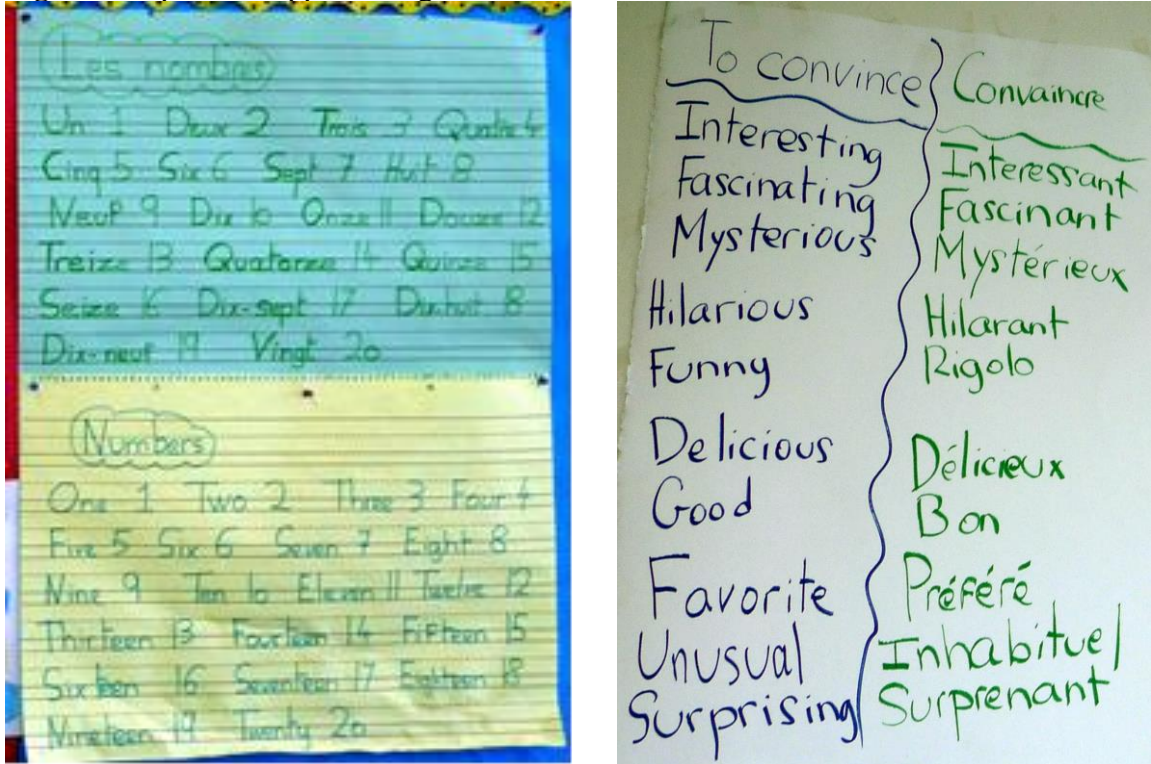 Les nombres
Un 1 Deux 2 Trois 3 Quatre 4
Cinq 5 Six 6 Sept 7 Huit 8
Neuf 9 Dix 10 Onze 11 Douze 12
Treize 13 Quatorze 14 Quinze 15
Seize 16 Dix-sept 17 Dix-huit 18
Dix-neuf 19 Vingt 20
Numbers
One 1 Two 2 Three 3 Four 4
Five 5 Six 6 Seven 7 Eight 8
Nine 9 Ten 10 Eleven 11 Twelve 12
Thirteen 13 Fourteen 14 Fifteen 15
Sixteen 16 Seventeen 17 Eighteen 18
Nineteen 19 Twenty 20
To convince
Interesting
Fascinating
Mysterious
Hilarious
Funny
Delicious
Good
Favorite
Unusual
Surprising
Convaincre
Interessant
Fascinant
Mystérieux
Hilarant
Rigolo
Délicieux
Bon
Préféré
Inhabituel
Surprenant